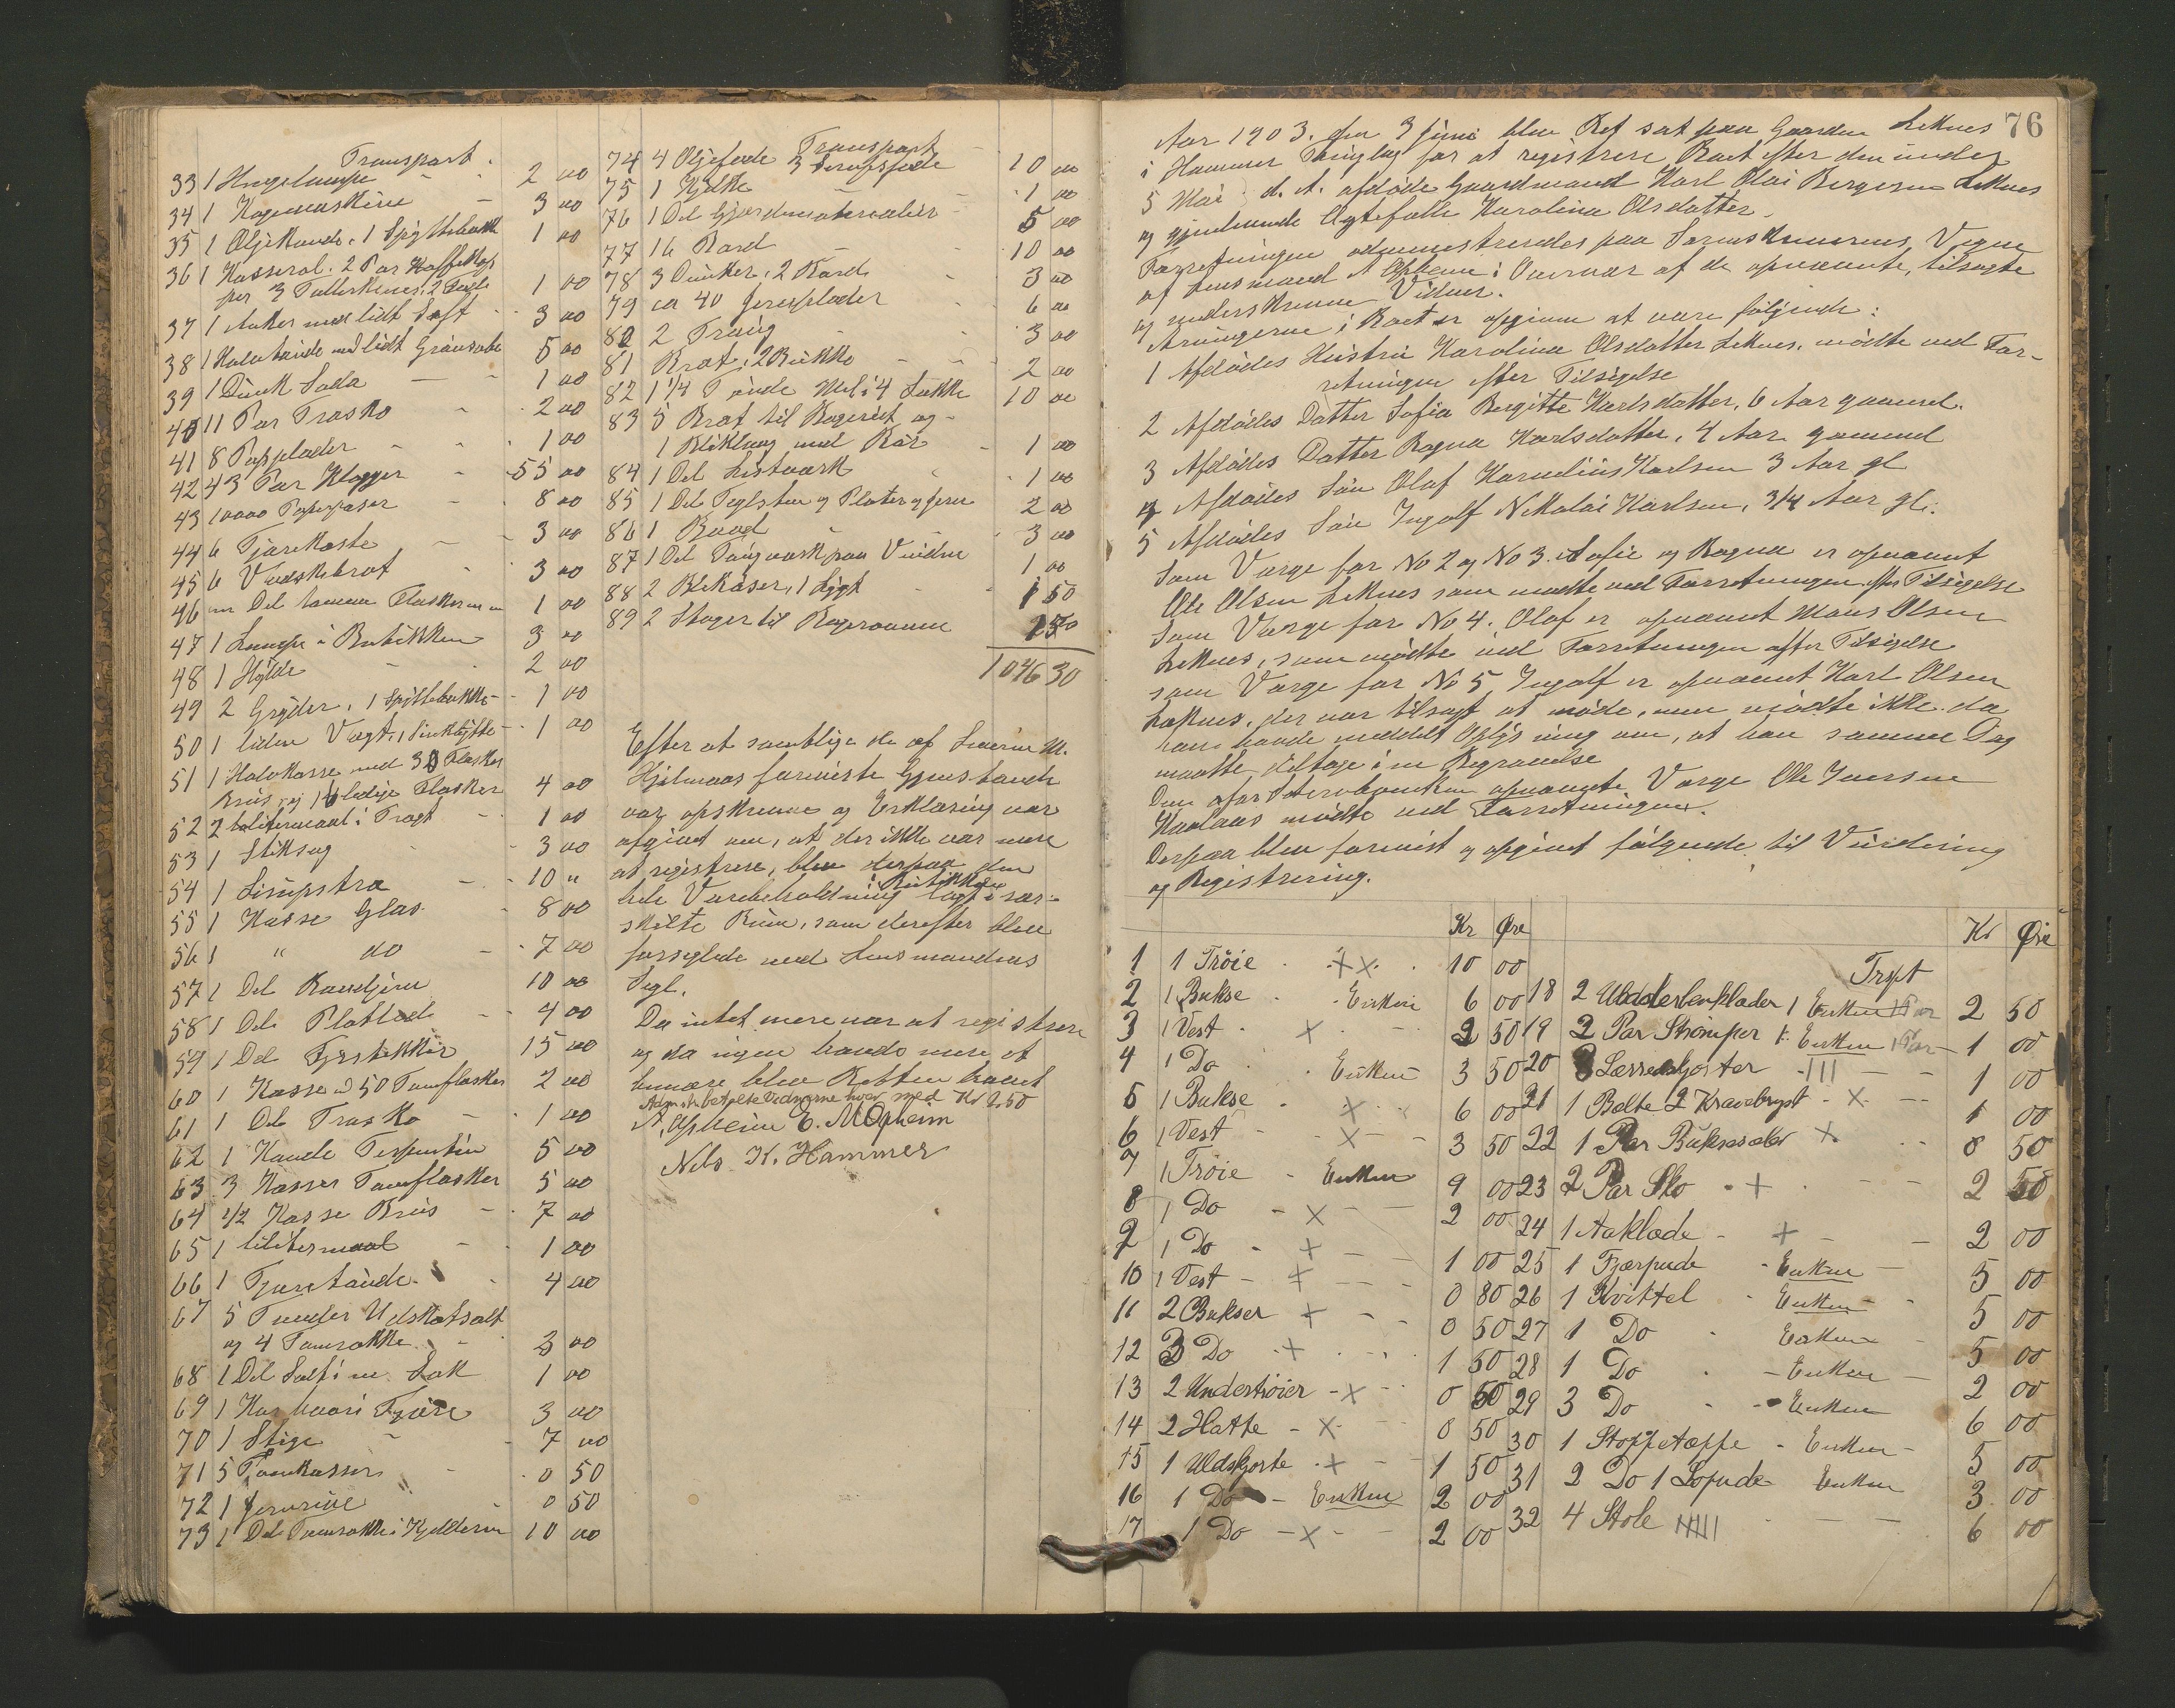 Transport
33 1 Hængelampe 2 00
34 1 Kogemaskine 3 00
35 1 Oljekande, 1 Spyttebakk 1 00
36 1 Kasserol, 2 Par Kaffekop
per 3 Tallerkener, 2
1 00
37 1 Anker med lidt Saft 3 00
38 1 Halvtønde med lidt Grønsæbe 5 00
39 1 Dunk Soda 1 00
40 11 Par Træsko 2 00
41 8 Papplader 1 00
42 43 Par Klogger 55 00
43 10000 Papirposer 8 00
44 6 Tjærekoste 3 00
45 6 Vadskebræt 3 00
46 en Del tomme Flasker 1 00
47 1 Lampe i Butikken 3 00
48 1 Hylde 2 00
49 2 Gryder, 1 Spyttebakke 1 00
50 1 liden Vægt, 1 Sinkbøtte 1 00
51 1 Halvkasse med 30 Flasker
Brus og 16 ledige Flasker 4 00
52 2 tolitermaal i Tragt 1 00
53 1 Stiksag 3 00
54 1 Sirupstræ 10 "
55 1 Kasse Glas 8 00
56 1 " do 7 00
57 1 Del Baandjern 10 00
58 1 Del Platlæder 4 00
59 1 Del Fyrstikker 15 00
60 1 Kasse 50 Tomflasker 2 00
61 1 Del Træsko 1 00
62 1 Kande Terpentin 5 00
63 3 Kasser Tomflasker 5 00
64 1/2 Kasse Brus 7 00
65 1 litermaal 1 00
66 1 Tjæretønde 4 00
67 5 Tønder Udskotsalt
og 4 Tomsække 3 00
68 1 Del Salt i en Sæk 1 00
69 1 Kar hvori Tjære 3 00
70 1 Stige 7 00
71 5 Tomkasser 0 50
72 1 0 50
73 1 Del Tomsække i Kjelderen 10 00
Transport
74 4 Oljefade 3 Sirupsfade 10 00
75 1 Kjælke 1 00
76 1 Del Gjærdematerialier 5 00
77 16 Bord 10 00
78 3 Dunker, 2 Bord 3 00
79 ca 40 Jernplader 6 00
80 2 Traug 3 00
81 Bræt, 2 Bukke 2 00
82 1 1/4 Tønde Mel i 4 Sække 10 00
83 5 Bræt til Bageriet og
1 Bliklaag med Rør 1 00
84 1 Del Listværk 1 00
85 1 Del Teglsten og Plater af Jern 2 00
86 1 Baad 3 00
87 1 Del Taugværk paa Vinden 1 00
88 2 Blikdaser, 1 Lygt 1 50
89 2 Stager til Bagerovnen
1046 30
Efter at samtlige de af Severin M.
Hjelmaas foreviste Gjenstande
var opskrevne og Erklæring var
afgivet om, at der ikke var mere
at registrere, blev derpaa den
hele Varebeholdning i Butikken lagt i sær-
skilte Rum, som derefter blev
forseglede med Lensmandens
Segl.
Da intet mere var at registrere
og da ingen havde mere at
bemærke blev Retten hævet
Admstr. betalte Vidnerne hver med Kr 2,50
A. Opheim E. M Opheim
Nils K. Hammer
76
Aar 1903, den 3 Juni blev Ret sat paa Gaarden Leknes
i Hammer Tinglag for at registrere Boet efter den under
5 Mai d. A. afdøde Gaardmand Karl Olai Bergesen Leknes
og gjenlevende Ægtefælle Karolina Olsdatter.
Forretningen administreredes paa Sorenskriverens Vegne
af Lensmand A Opheim i Overvær af de opnævnte, tilsagte
og underskrevne Vidner.
Arvingerne i Boet er opgivne at være følgende:
1 Afdødes Hustru Karolina Olsdatter Leknes, mødte ved For-
retningen efter Tilsigelse
2 Afdødes Datter Sofia Bergitte Karlsdatter, 6 Aar gammel.
3 Afdødes Datter Ragna Karlsdatter, 4 Aar gammel
4 Afdødes Søn Olaf Kornelius Karlsen 3 Aar gl
5 Afdødes Søn Ingolf Nikolai Karlsen, 3/4 Aar gl.
Som Værge for No 2 og No 3. Sofie og Ragna er opnævnt
Ole Olsen Leknes som mødte ved Forretningen efter Tilsigelse
Som Værge for No 4. Olaf er opnævnt Mons Olsen
Leknes, som mødte ved Forretningen efter Tilsigelse
som Værge for No 5 Ingolf er opnævnt Karl Olsen
Leknes, der var tilsagt at møde, men mødte ikke da
han havde meddelt Oplysning om, at han samme Dag
maatte deltage i en Begravelse
Den afor opnævnte Værge Ole Iversen
mødte ved Forretningen.
Derpaa blev forevist og opgivet følgende til Vurdering
og Registrering.
Kr Øre
1 1 Trøie XX 10 00
2 1 Bukse Enken 6 00
3 1 Vest X 2 50
4 1 Do Enken 3 50
5 1 Bukse X 6 00
6 1 Vest X 3 50
7 1 Trøie Enken 9 00
8 1 Do X 2 00
9 1 Do + 1 00
10 1 Vest + 0 80
11 2 Bukser + 0 50
12 3 Do + 1 50
13 2 Undertrøier X 0 60
14 2 Hatte X 0 50
15 1 Uldskjorte X 1 50
16 1 Do Enken 2 00
17 1 Do X 2 00
Kr Øre
Trpt
18 2 Uldderbenklæder 1 Enken 1 Par 2 50
19 2 Par Strømper 1 Enken 1 Par 1 00
20 3 Lærredskjorter III 1 00
21 1 Belte 2 Kravebryst X 1 00
22 1 Par Bukseseler X 0 50
23 2 Par Sko + 2 50
24 1 Aaklæde + 2 00
25 1 Fjærpude Enken 5 00
26 1 Kvittel Enken 5 00
27 1 Do Enken 5 00
28 1 Do Enken 2 00
29 3 Do Enken 6 00
30 1 Stoppetæppe Enken 5 00
31 2 Do 1 Sofpude Enken 3 00
32 4 Stole 6 00